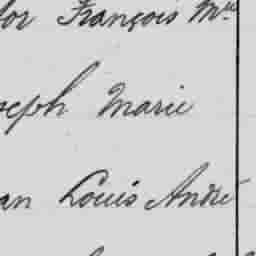 for François Mie
seph Marie
an Louis André